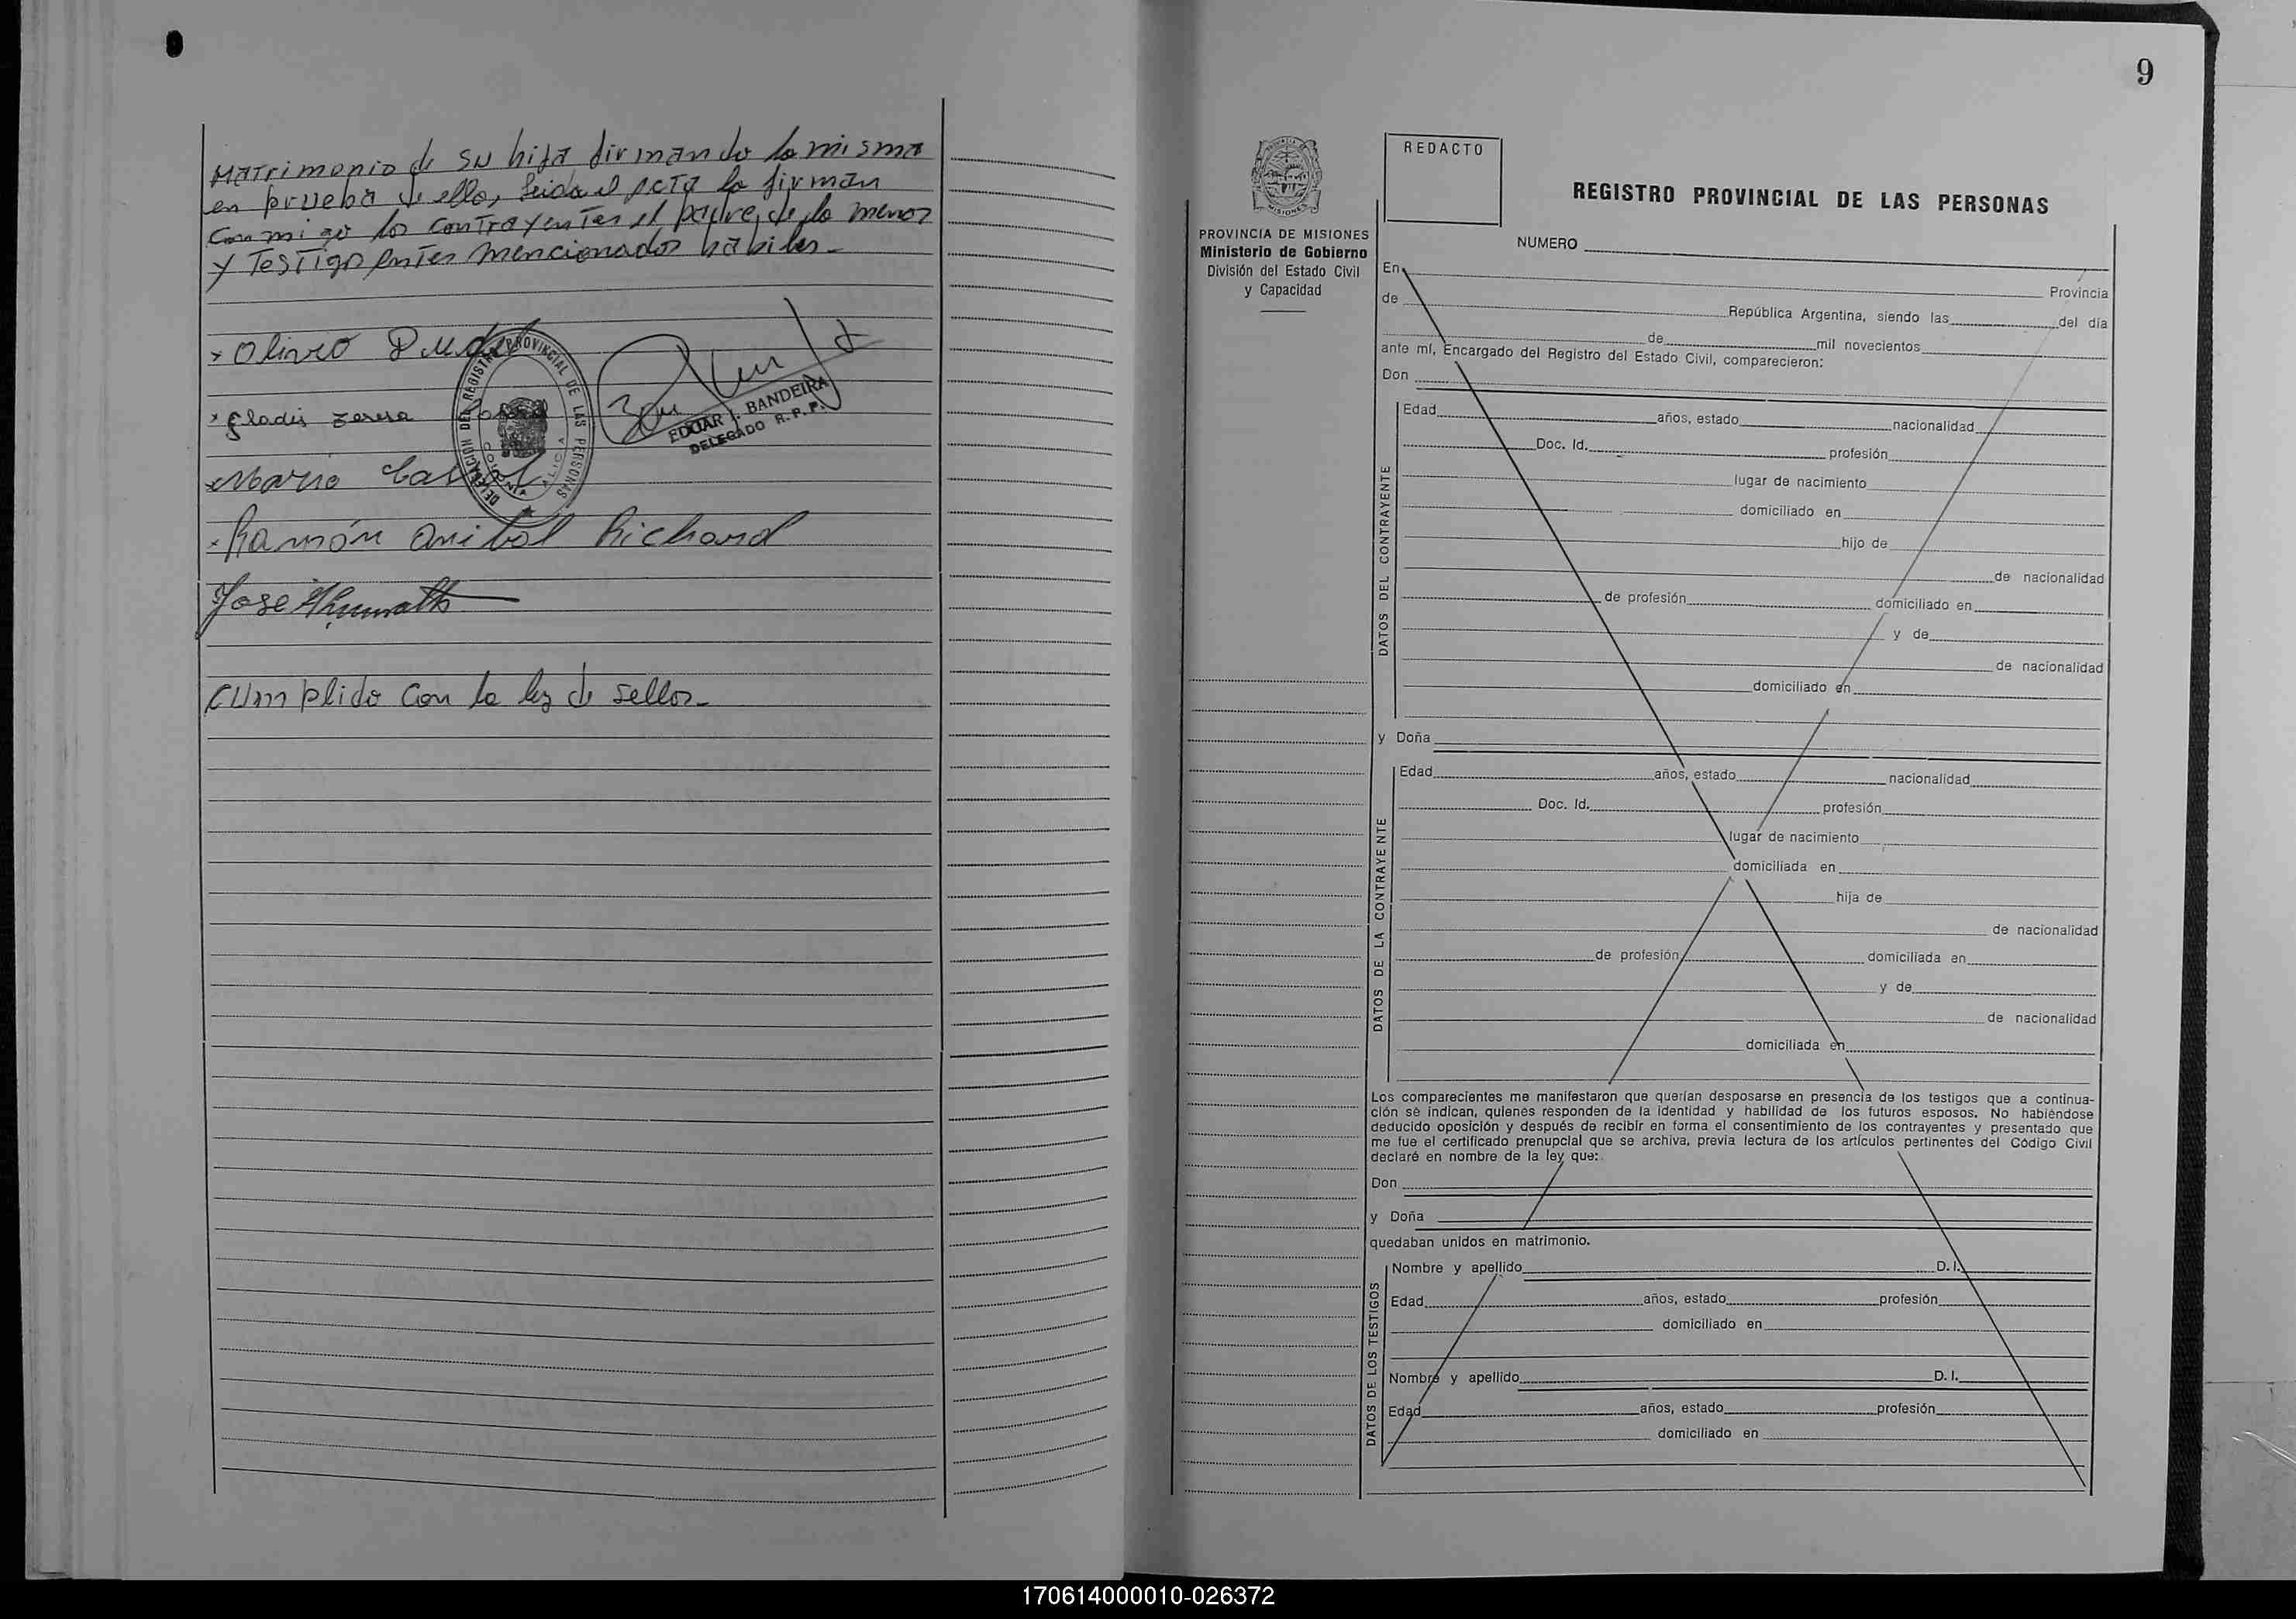 Matrimonio de su hija firmando la misma
en prueba de ello, leida el acta la firman
conmigo los contrayentes el padre de la menor
y Testigo antes mencionados habiles -
x Olivio
DELEGACION DEL REGISTRO PROVINCIAL DE LAS PERSONAS
COLONIA ALICIA
EDUAR I. BANDEIRA
DELEGADO R.P.P.
x Gladis Teresa
x Mario
x Ramón Anibal Richard
Jose
Cumplido con la ley de sellos -
9
PROVINCIA DE MISIONES
Ministerio de Gobierno
División del Estado Civil
y Capacidad
REDACTO
REGISTRO PROVINCIAL DE LAS PERSONAS
NUMERO
En Provincia
de República Argentina, siendo las del día
de mil novecientos
ante mí, Encargado del Registro del Estado Civil, comparecieron:
Don
DATOS DEL CONTRAYENTE
Edad años, estado nacionalidad
Doc. Id. profesión
lugar de nacimiento
domiciliado en
hijo de
de nacionalidad
de profesión domiciliado en
y de
de nacionalidad
domiciliado en
y Doña
DATOS DE LA CONTRAYENTE
Edad años, estado nacionalidad
Doc. Id. profesión
lugar de nacimiento
domiciliada en
hija de
de nacionalidad
de profesión domiciliada en
y de
de nacionalidad
domiciliada en
Los comparecientes me manifestaron que querían desposarse en presencia de los testigos que a continua-
ción se indican, quienes responden de la identidad y habilidad de los futuros esposos. No habiéndose
deducido oposición y después de recibir en forma el consentimiento de los contrayentes y presentado que
me fue el certificado prenupcial que se archiva, previa lectura de los artículos pertinentes del Código Civil
declaré en nombre de la ley que:
Don
y Doña
quedaban unidos en matrimonio.
DATOS DE LOS TESTIGOS
Nombre y apellido D. I.
Edad años, estado profesión
domiciliado en
Nombre y apellido D. I.
Edad años, estado profesión
domiciliado en
170614000010-026372